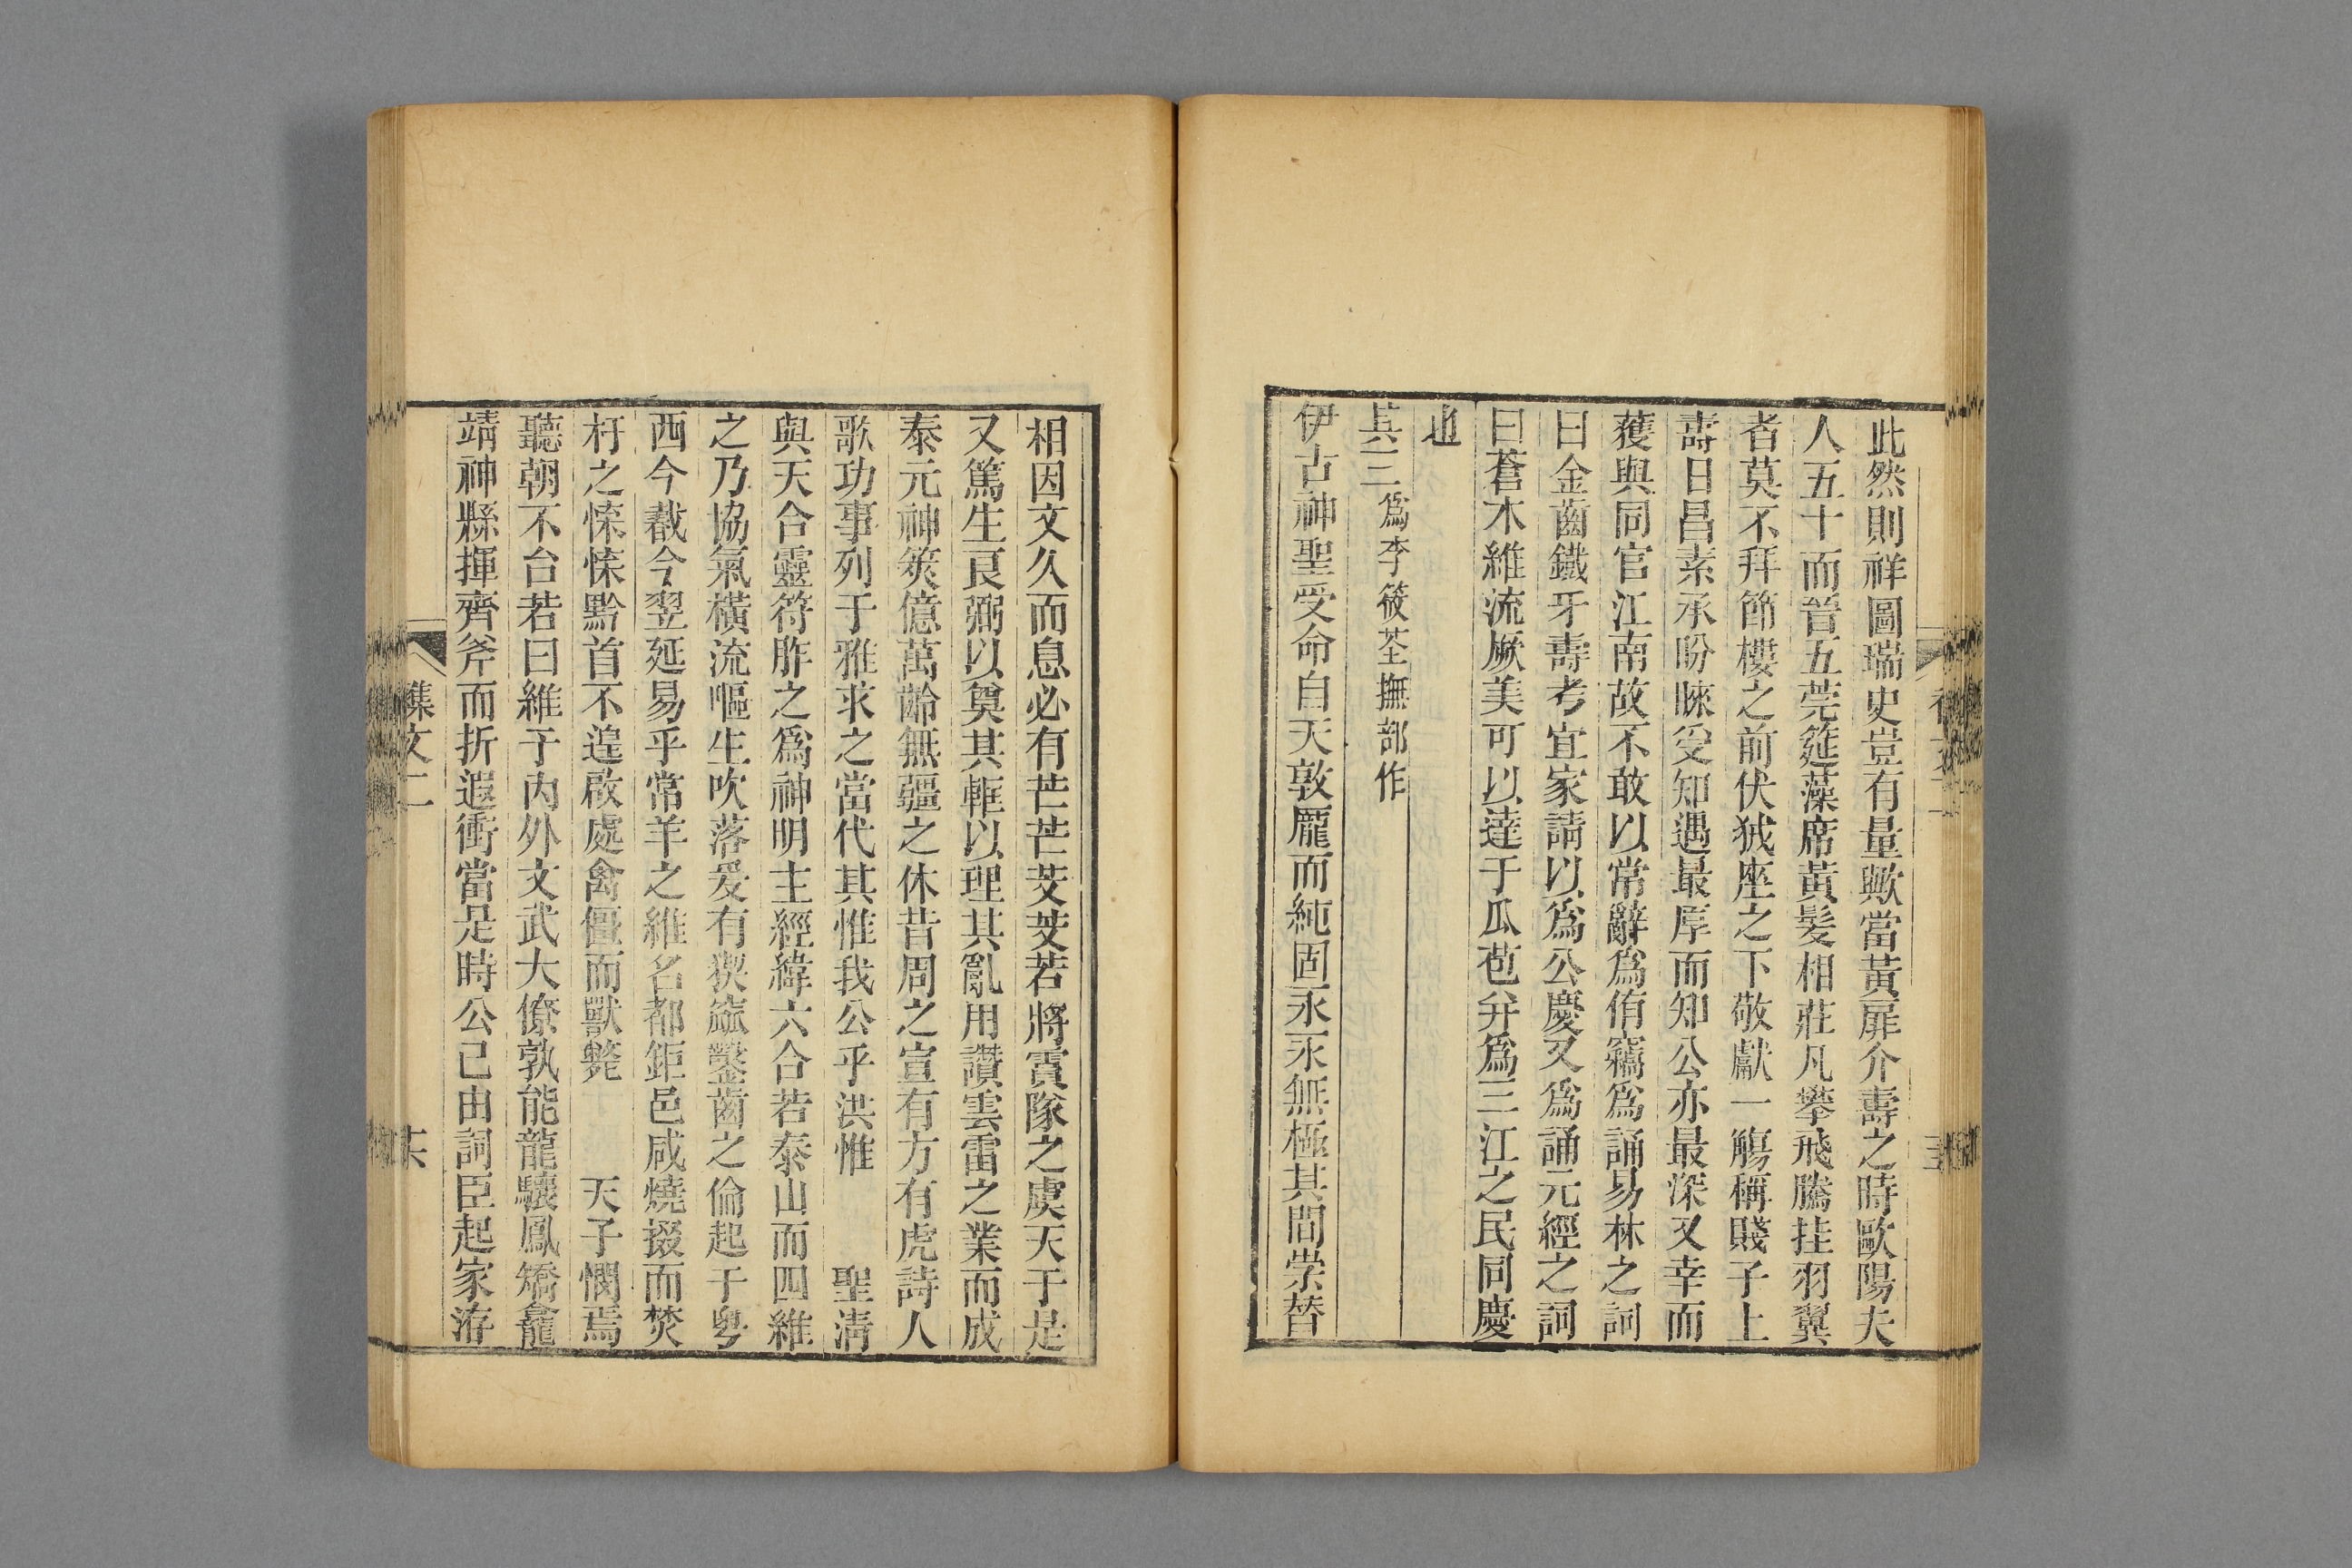 此然則祥圖瑞史豈有量歟當黃扉介壽之時歐陽夫
人五十而晉五莞筵藻席黃髮相莊凡攀飛騰挂羽翼
者莫不拜節樓之前伏狨座之下敬獻一觴稱賤子上
壽日昌素承盼睞受知遇最厚而知公亦最深又幸而
獲與同官江南故不敢以常辭為侑竊為誦易林之詞
曰金齒鐵牙壽考宜家請以為公慶又為誦元經之詞
曰蒼木維流厥美可以達于瓜苞弁為三江之民同慶
也
其三 為李筱荃撫部作
伊古神聖受命自天敦厖而純固永永無極其間崇替
相因文久而息必有芒芒芠芠若將霣隊之虞天于是
又篤生良弼以奠其軭以理其亂用讚雲雷之業而成
泰元神筴億萬齡無疆之休昔周之宣有方有虎詩人
歌功事列于雅求之當代其惟我公乎洪惟 聖清
與天合靈符胙之為神明主經緯六合若泰山而四維
之乃協氣橫流嘔生吹落爰有猰㺄鑿齒之倫起于粵
西今戳今翌延易乎常羊之維名都鉅邑咸燒掇而焚
杅之悇悇黔首不遑啟處禽僵而獸斃 天子憫焉
聽朝不台若曰維于內外文武大僚孰能龍驤鳳矯龕
靖神縣揮齊斧而折遐衝當是時公已由詞臣起家洊
集文二